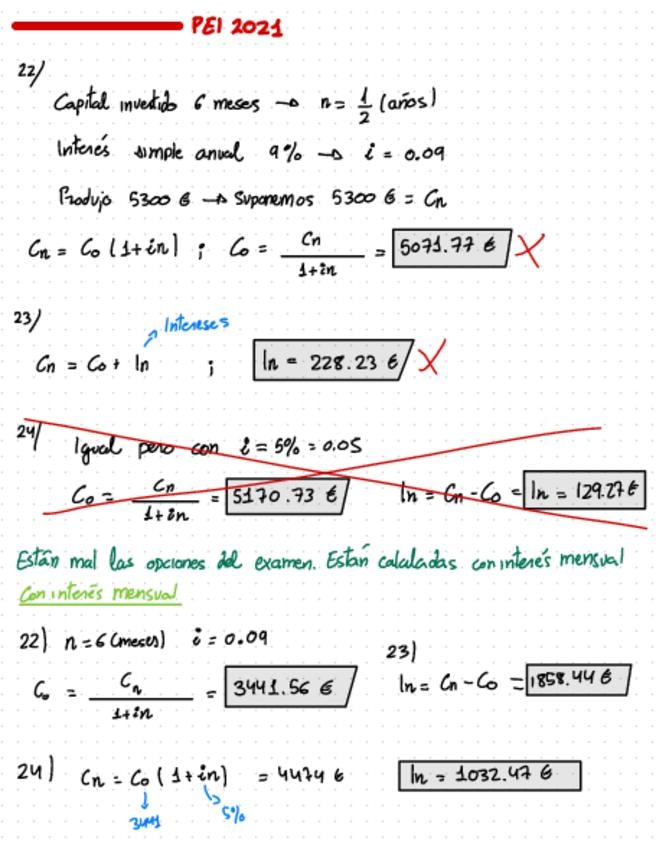 PEI 2021
22/
Capital invertido 6 meses → n = 1/2 (años)
Interés simple anual 9% → i = 0.09
Produjo 5300 € → Suponemos 5300 € = Cn
Cn = Co (1+in) ; Co = Cn / 1+in = 5071.77 € X
23/
Intereses
Cn = Co + In ; In = 228.23 € X
24/ Igual pero con i = 5% = 0.05
Co = Cn / 1+in = 5170.73 € In = Cn - Co = In = 129.27 €
Están mal las opciones del examen. Están calculadas con interés mensual
Con interés mensual
22) n = 6 (meses) i = 0.09
Co = Cn / 1+in = 3441.56 €
23)
In = Cn - Co = 1858.44 €
24) Cn = Co (1+in) = 4474 € In = 1032.47 €
3441 5%